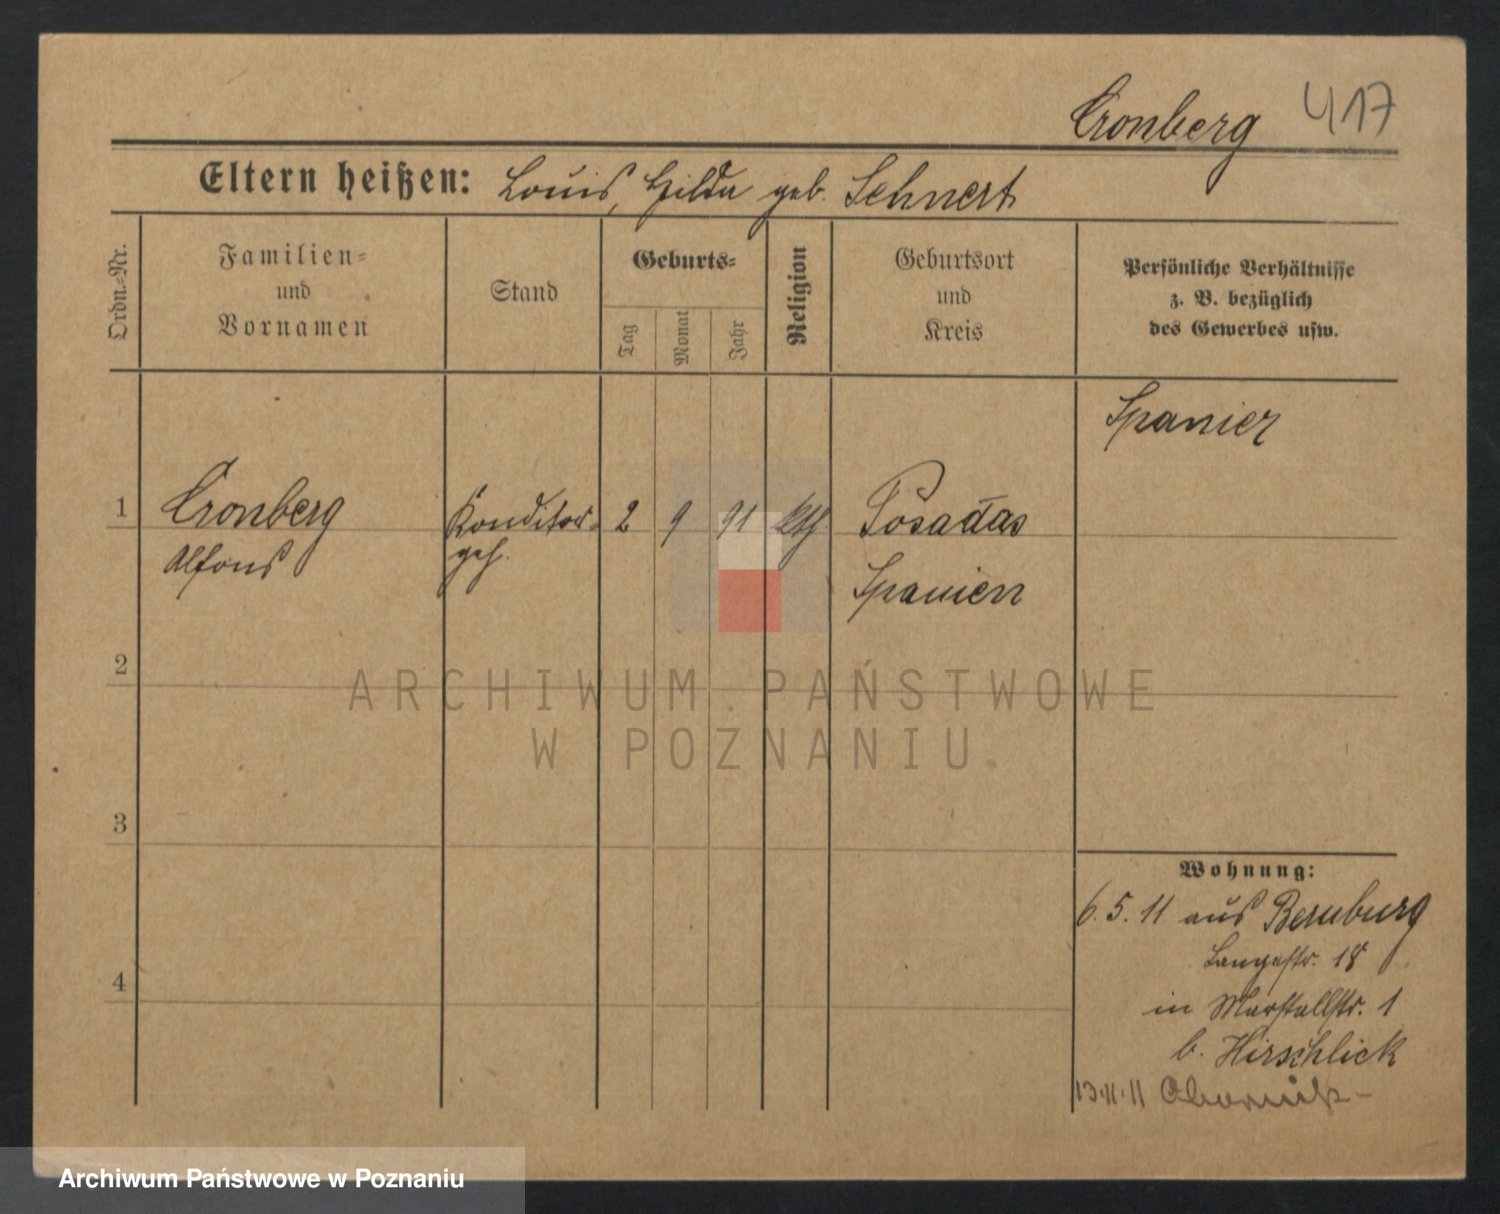 Cronberg 417
Eltern heißen: Louis, Hilda geb. Schnert
Ordn.=Nr.
Familien=
und
Vornamen
Stand
Geburts=
Tag
Monat
Jahr
Religion
Geburtsort
und
Kreis
Persönliche Verhältnisse
z. B. bezüglich
des Gewerbes usw.
Spanier
1 Cronberg Konditor= 2 9 91 kth Posadas
Alfons geh. Spanien
2
3
4
Wohnung:
6.5.11 aus Bernburg
Langestr. 18
in Marstallstr. 1
b. Hirschlick
13.11.11 Obornik
ARCHIWUM PAŃSTWOWE
W POZNANIU
Archiwum Państwowe w Poznaniu